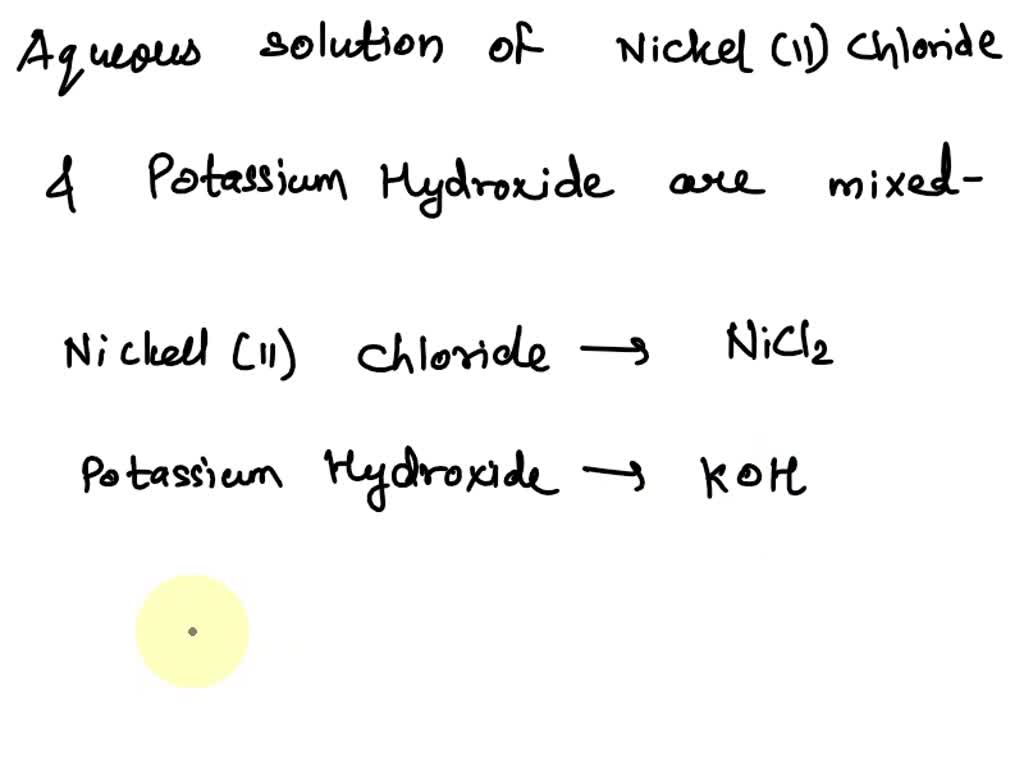 Aqueous solution of Nickel (II) Chloride
& Potassium Hydroxide are mixed-
Nickell (II) Chloride → NiCl2
Potassium Hydroxide → KOH